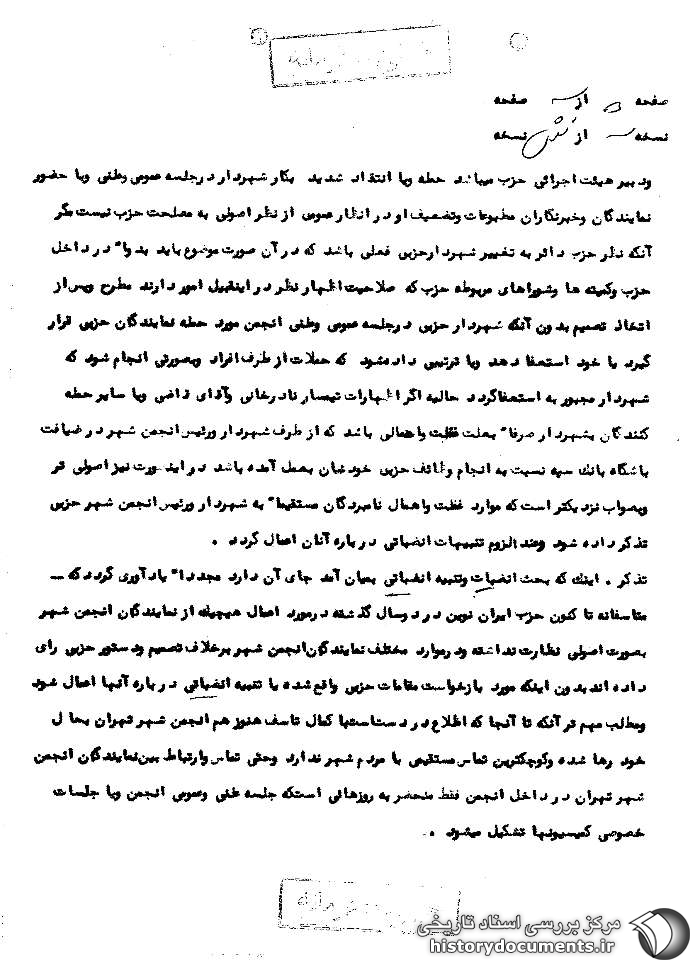 صفحه از صفحه
نسخه از شش نسخه
ودبیر هیئت اجرائی حزب میباشد حمله ویا انتقاد شدید بکار شهردار درجلسه عمومی وعلنی وبا حضور
نمایندگان وخبرنگاران مطبوعات وتضعیف او در انظار عمومی از نظر اصولی به مصلحت حزب نیست مگر
آنکه نظر حزب دائر به تغییر شهردار حزبی فعلی باشد که در آن صورت موضوع باید بدوا" در داخل
حزب وکمیته ها وشوراهای مربوطه حزب که صلاحیت اظهار نظر در اینقبیل امور دارند مطرح وپس از
اتخاذ تصمیم بدون آنکه شهردار حزبی درجلسه عمومی وعلنی انجمن مورد حمله نمایندگان حزبی قرار
گیرد یا خود استعفا دهد ویا ترتیبی داده شود که حملات از طرف افراد وبصورتی انجام شود که
شهردار مجبور به استعفا گردد حالیه اگر اظهارات تیمسار نادرخانی وآقای قاضی ویا سایر حمله
کنندگان بشهردار صرفا" بعلت غفلت واهمالی باشد که از طرف شهردار ورئیس انجمن شهر در ضیافت
باشگاه بانک سپه نسبت به انجام وظائف حزبی خودشان بعمل آمده باشد در اینصورت نیز اصولی تر
وبصواب نزدیکتر است که موارد غفلت واهمال نامبردگان مستقیما" به شهردار ورئیس انجمن شهر حزبی
تذکر داده شود وعند الزوم تنبیهات انضباتی درباره آنان اعمال گردد .
تذکر . اینک که بحث انضبات وتنبیه انضباتی بمیان آمد جای آن دارد مجددا" یادآوری گردد که ــ
متاسفانه تا کنون حزب ایران نوین در دو سال گذشته درمورد اعمال هیچیک از نمایندگان انجمن شهر
بصورت اصولی نظارت نداشته ودرموارد مختلف نمایندگان انجمن شهر برخلاف تصمیم ودستور حزبی رای
داده اند بدون اینکه مورد بازخواست مقامات حزبی واقع شده یا تنبیه انضباتی درباره آنها اعمال شود
ومطلب مهم تر آنکه تا آنجا که اطلاع در دست است با کمال تاسف هنوز هم انجمن شهر تهران بحال
خود رها شده وکوچکترین تماس مستقیمی با مردم شهر ندارد وحتی تماس وارتباط بین نمایندگان انجمن
شهر تهران در داخل انجمن فقط منحصر به روزهائی است که جلسه علنی وعمومی انجمن ویا جلسات
خصوصی کمیسیونها تشکیل میشود .
مرکز بررسی اسناد تاریخی
historydocuments.ir